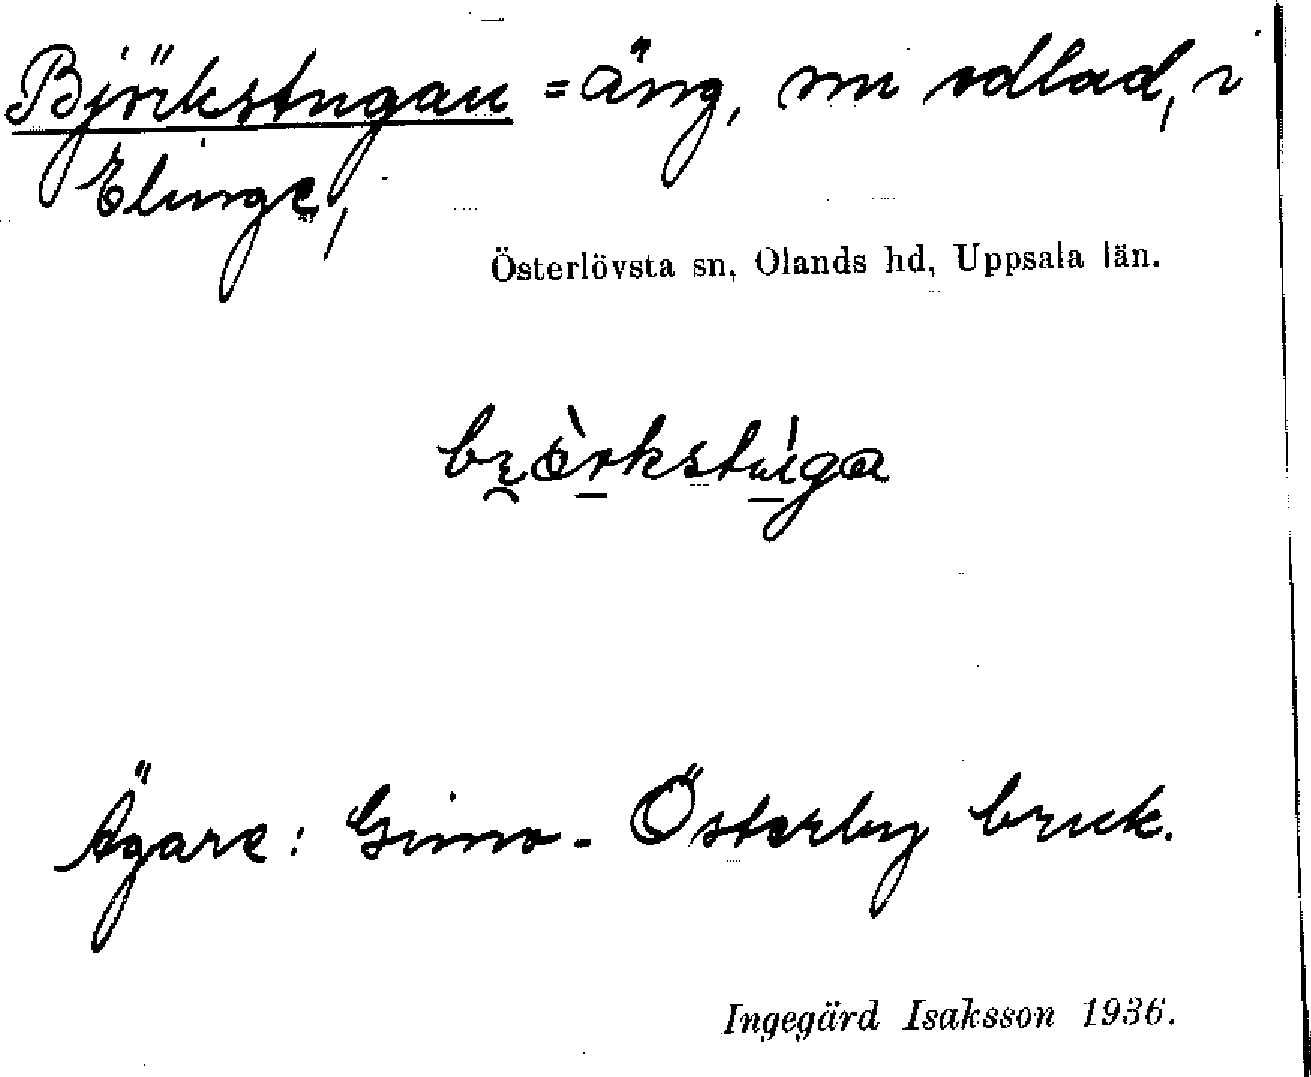 Björkstugan = äng, nu odlad, i
Elinge,
Österlövsta sn, Olands hd, Uppsala län.
Ägare: Gimo-Österby bruk.
Ingegärd Isaksson 1936.